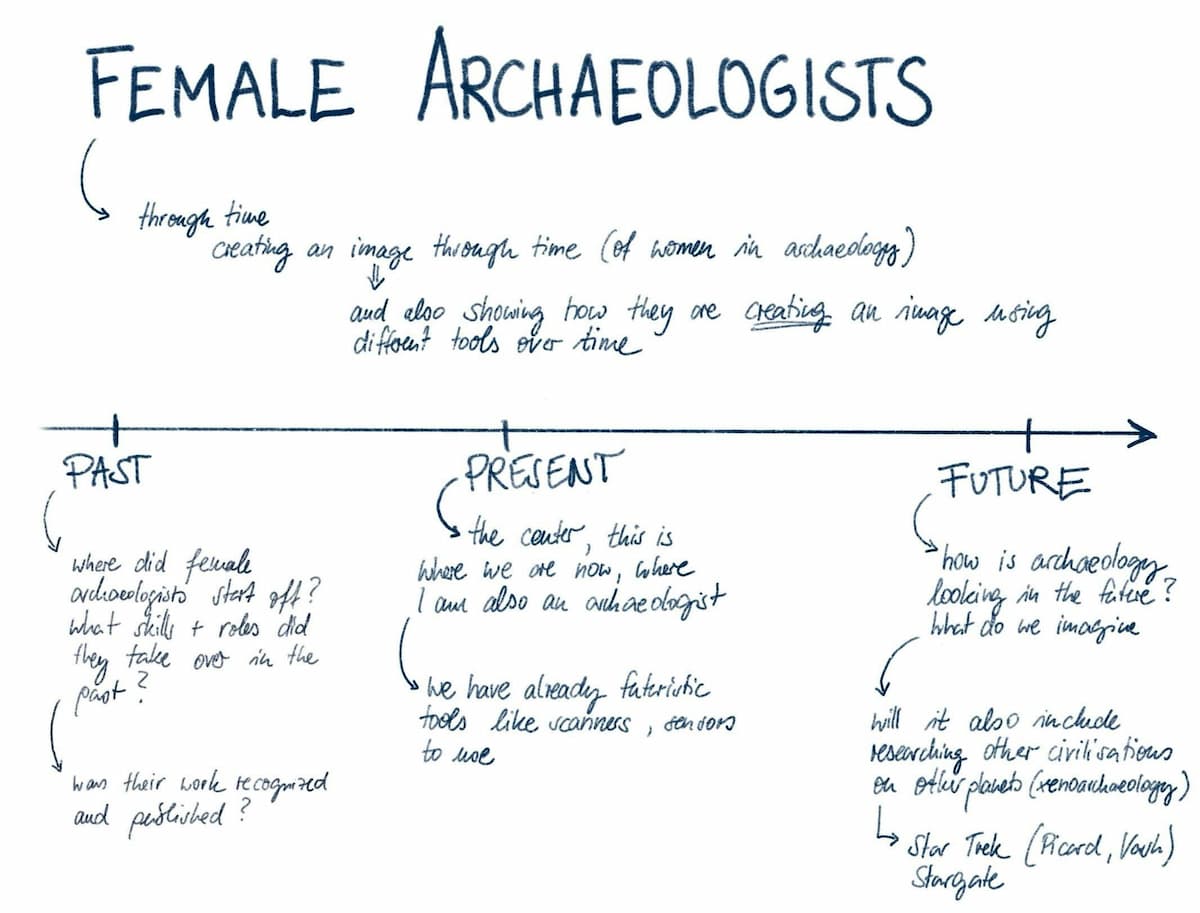 FEMALE ARCHAEOLOGISTS
through time
creating an image through time (of women in archaeology)
and also showing how they are creating an image using
different tools over time
PAST
where did female
archaeologists start off?
what skills + roles did
they take over in the
past?
was their work recognized
and published?
PRESENT
the center, this is
where we are now, where
I am also an archaeologist
we have already futuristic
tools like scanners, sensors
to use
FUTURE
how is archaeology
looking in the future?
What do we imagine
will it also include
researching other civilisations
on other planets (xenoarchaeology)
Star Trek (Picard, Vash)
Stargate